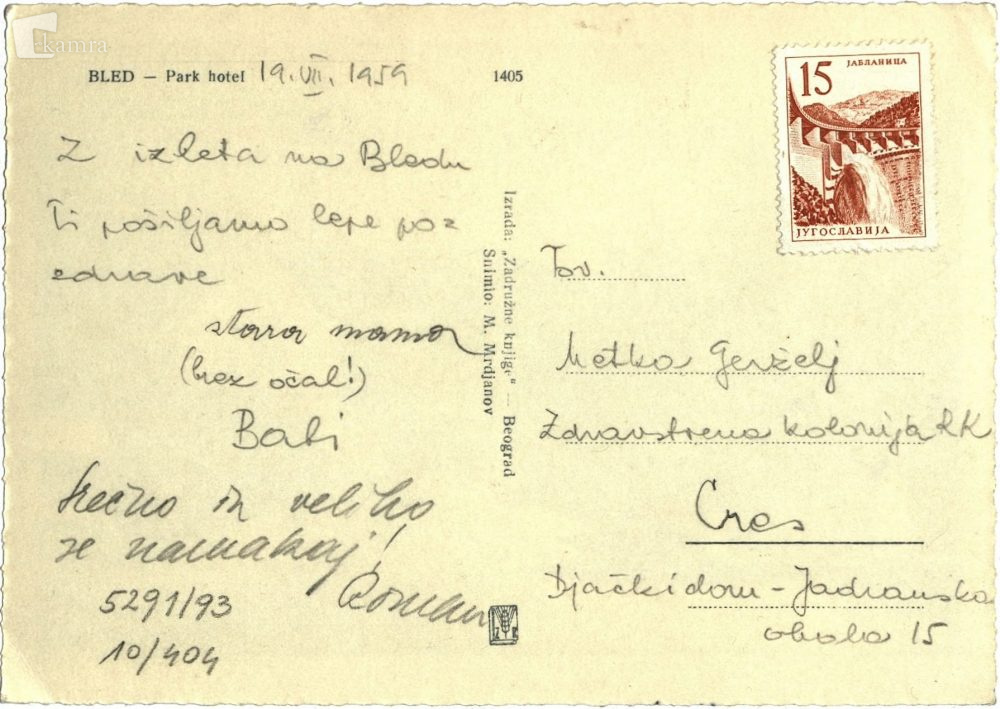 kamra
BLED — Park hotel 19. VII. 1959
1405
Z izleta na Bledu
Ti pošiljamo lepe poz
drave
stara mama
(brez očal!)
Babi
Srečno in veliko
se namakaj!
Roman
5291/93
10/404
Izrada: „Zadružne knjige“ — Beograd
Snimio: M. Mrdjanov
15 ЈАБЛАНИЦА
ЈУГОСЛАВИЈА
Tov.
Metka Gerželj
Zdravstvena kolonija RK
Cres
Djački dom - Jadranska
obala 15